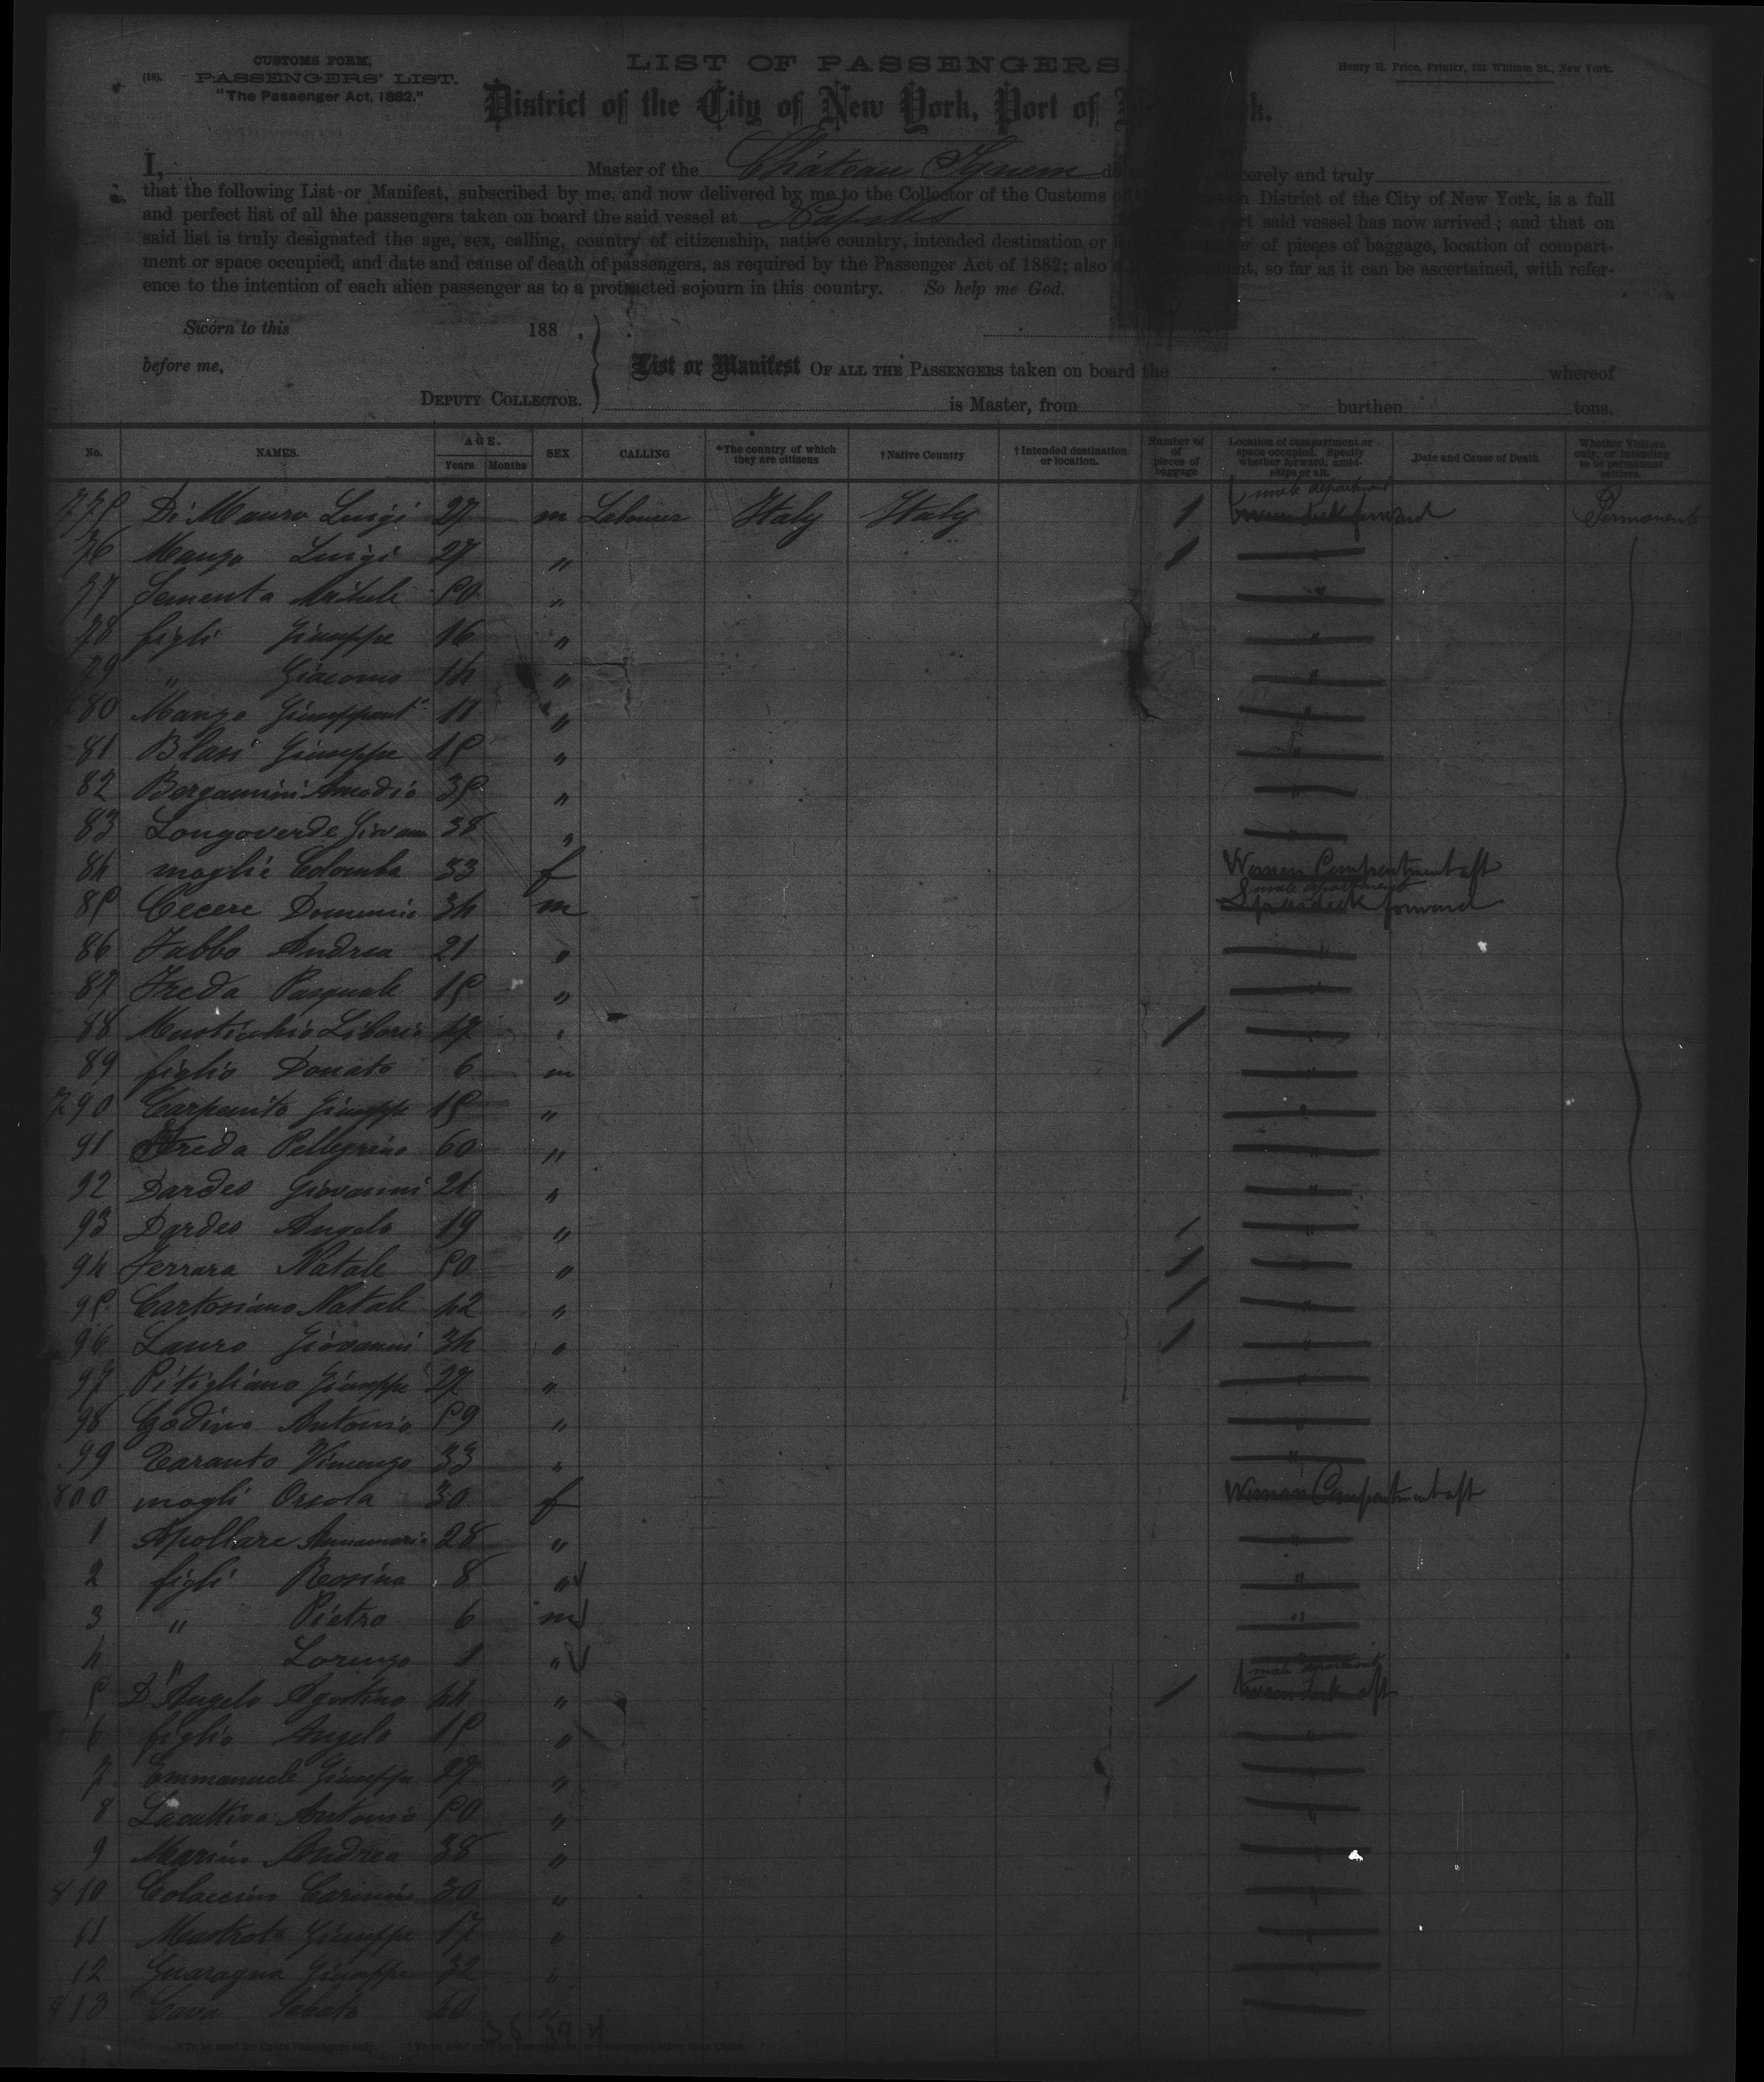 CUSTOMS FORM,
(18). PASSENGERS' LIST.
"The Passenger Act, 1882."
LIST OF PASSENGERS
Henry H. Price, Printer, 131 William St., New York.
District of the City of New York, Port of
I, Master of the Château Yquem erely and truly
that the following List or Manifest, subscribed by me, and now delivered by me to the Collector of the Customs District of the City of New York, is a full
and perfect list of all the passengers taken on board the said vessel at Naples said vessel has now arrived; and that on
said list is truly designated the age, sex, calling, country of citizenship, native country, intended destination or of pieces of baggage, location of compart-
ment or space occupied, and date and cause of death of passengers, as required by the Passenger Act of 1882; also so far as it can be ascertained, with refer-
ence to the intention of each alien passenger as to a protracted sojourn in this country. So help me God.
Sworn to this 188 .
before me,
DEPUTY COLLECTOR.
List or Manifest OF ALL THE PASSENGERS taken on board the whereof
is Master, from burthen tons.
No. NAMES. AGE. Years Months SEX CALLING *The country of which they are citizens †Native Country †Intended destination or location. Number of pieces of baggage Location of compartment or space occupied. Specify whether forward, amidships or aft. Date and Cause of Death Whether Visitors only, or intending to be permanent settlers.
775 Di Mauro Luigi 27 m Labourer Italy Italy 1 male department forward Permanent
76 Manzo Luigi 27 " 1 "
77 Sementa Michele 50 " "
78 figli Giuseppe 16 " "
79 " Giacomo 14 " "
80 Manzo 11 " "
81 Blasi Giuseppe 15 " "
82 Bergamini Amodio 35 " "
83 Longoverde Giovanni 38 " "
84 moglie Colomba 33 f Women Compartment aft
85 Cecere Domenico 34 m male department forward
86 Fabbo Andrea 21 " "
87 Freda Pasquale 15 " "
88 Liborio 47 " 1 "
89 figlio Donato 6 m "
790 Carpenito Giuseppe 15 " "
91 Freda Pellegrino 60 " "
92 Dardes Giovanni 21 " "
93 Dardes Angelo 19 " 1 "
94 Ferrara Natale 50 " 1 "
95 Cartosiano Natale 42 " 1 "
96 Lauro Giovanni 34 " 1 "
97 Pitigliano Giuseppe 27 " "
98 Godino Antonio 59 " "
99 Taranto Vincenzo 33 " "
800 mogli Orsola 30 f Women Compartment aft
1 Apollare Annamaria 28 " "
2 figli Rosina 8 " "
3 " Pietro 6 m "
4 " Lorenzo 1 " "
5 D'Angelo Agostino 44 " 1 male department aft
6 figlio Angelo 15 " "
7 Emmanuele Giuseppe 27 " "
8 Antonio 50 " "
9 Marino Andrea 38 " "
810 Colaccino Carmine 30 " "
11 Giuseppe 17 " "
12 Guaragna Giuseppe 32 " "
813 Sabato "